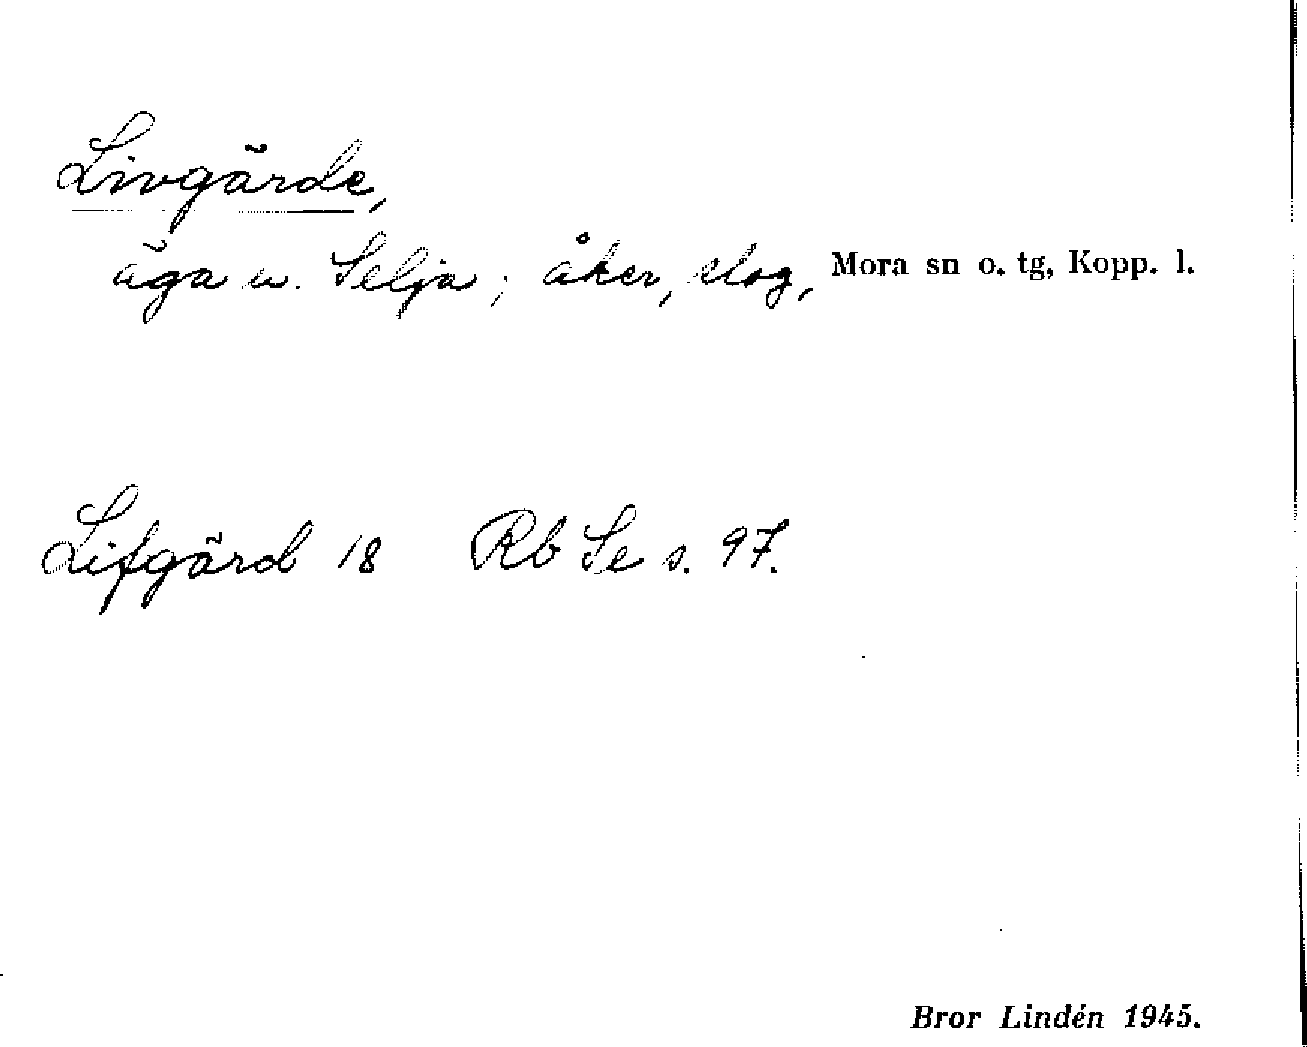 Livgärde,
äga u. Selja; åker, slog, Mora sn o. tg, Kopp. l.
Lifgärd 18 Rb Se s. 97.
Bror Lindén 1945.